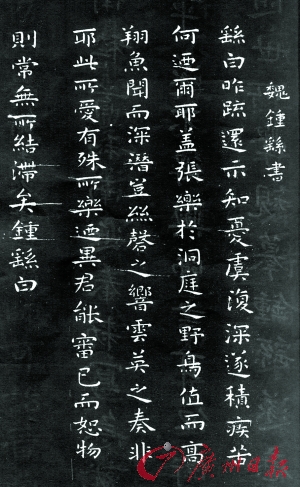 魏鍾繇書
繇白昨疏還示知憂虞復深遂積疾苦
何迺爾耶蓋張樂於洞庭之野鳥值而高
翔魚聞而深潛豈絲磬之響雲英之奏非
耶此所愛有殊所樂迺異君能審己而恕物
則常無所結滯矣鍾繇白
廣州日報